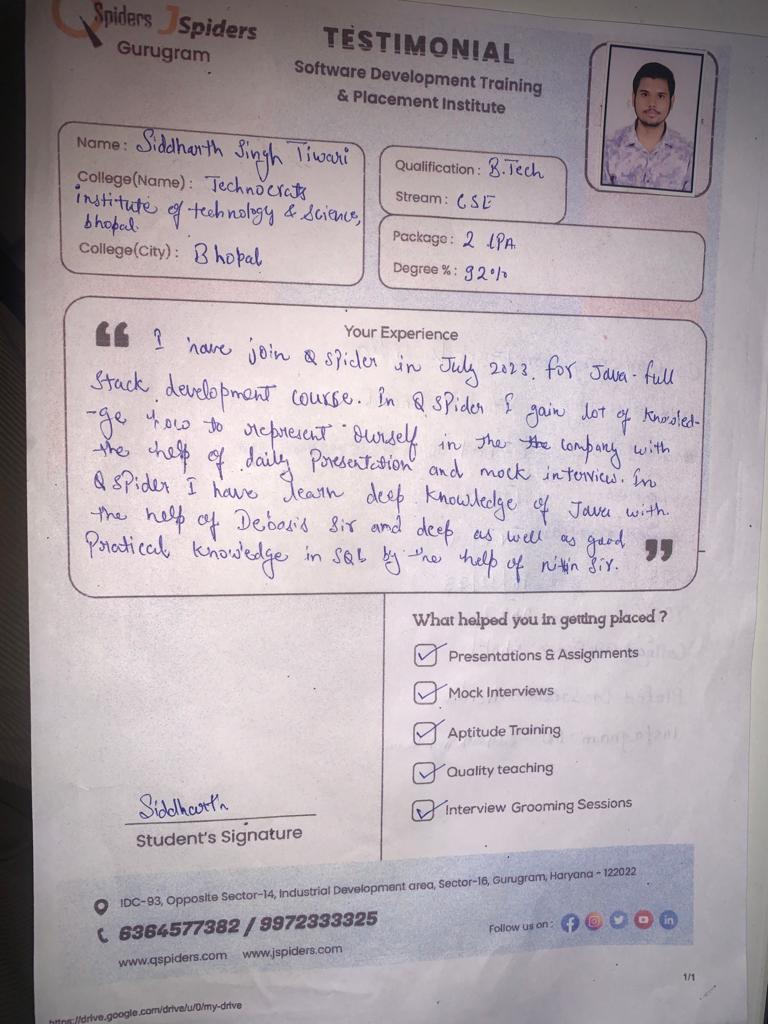 QSpiders JSpiders
Gurugram
TESTIMONIAL
Software Development Training
& Placement Institute
Name : Siddharth Singh Tiwari
College(Name) : Technocrats
institute of technology & Science,
bhopal.
College(City) : Bhopal
Qualification : B.Tech
Stream : CSE
Package : 2 LPA
Degree % : 92%
Your Experience
“ I have join Q SPider in July 2023. for Java-full
Stack development course. In Q SPider I gain lot of Knowled-
-ge how to represent Ourself in the the company with
the help of daily Presentation and mock interview. In
Q SPider I have learn deep Knowledge of Java with
the help of Debasis Sir and deep as well as good
Pratical Knowledge in SQL by the help of nitin Sir. ”
What helped you in getting placed ?
Presentations & Assignments
Mock Interviews
Aptitude Training
Quality teaching
Interview Grooming Sessions
Siddharth
Student's Signature
IDC-93, Opposite Sector-14, Industrial Development area, Sector-16, Gurugram, Haryana - 122022
6364577382 / 9972333325
Follow us on :
www.qspiders.com www.jspiders.com
1/1
https://drive.google.com/drive/u/0/my-drive